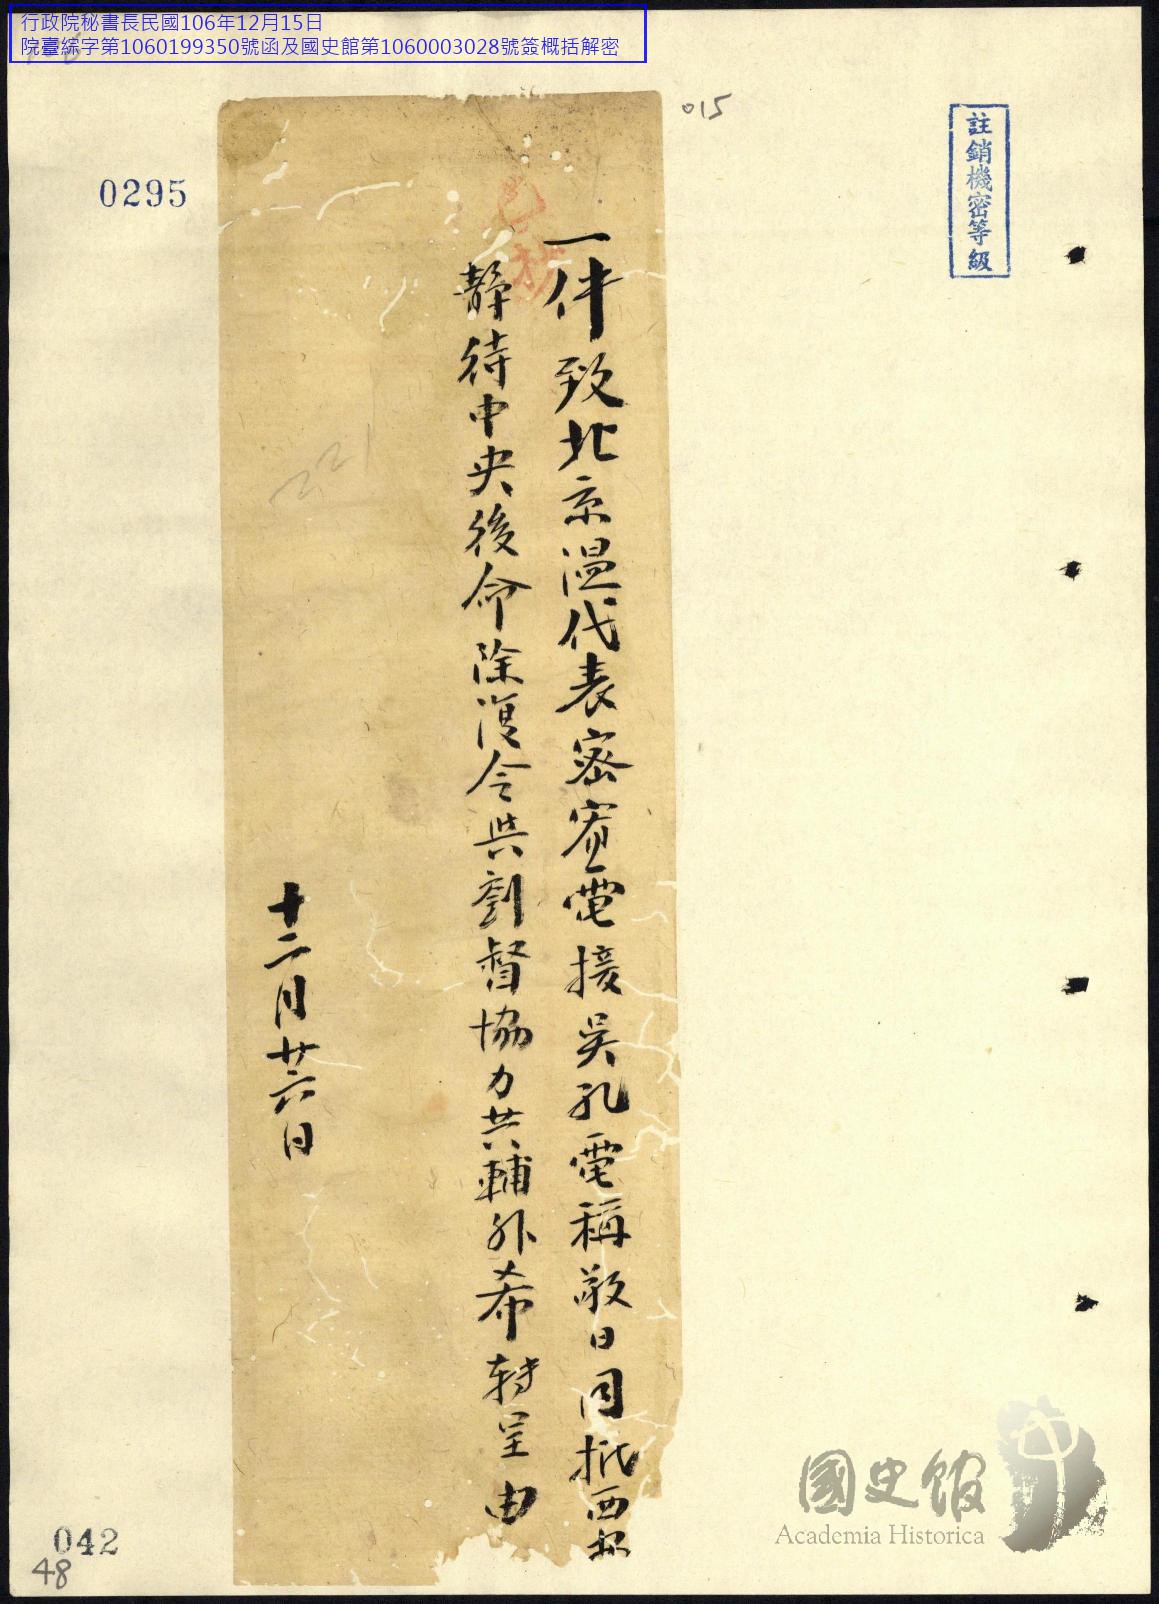 行政院秘書長民國106年12月15日
院臺綜字第1060199350號函及國史館第1060003028號簽概括解密
015
0295
註銷機密等級
一件致北京温代表密電接吳孔電稱敬日同抵西
靜待中央後命除復令與劉督協力共輔外希轉呈由
十二月廿六日
221
042
48
國史館
Academia Historica